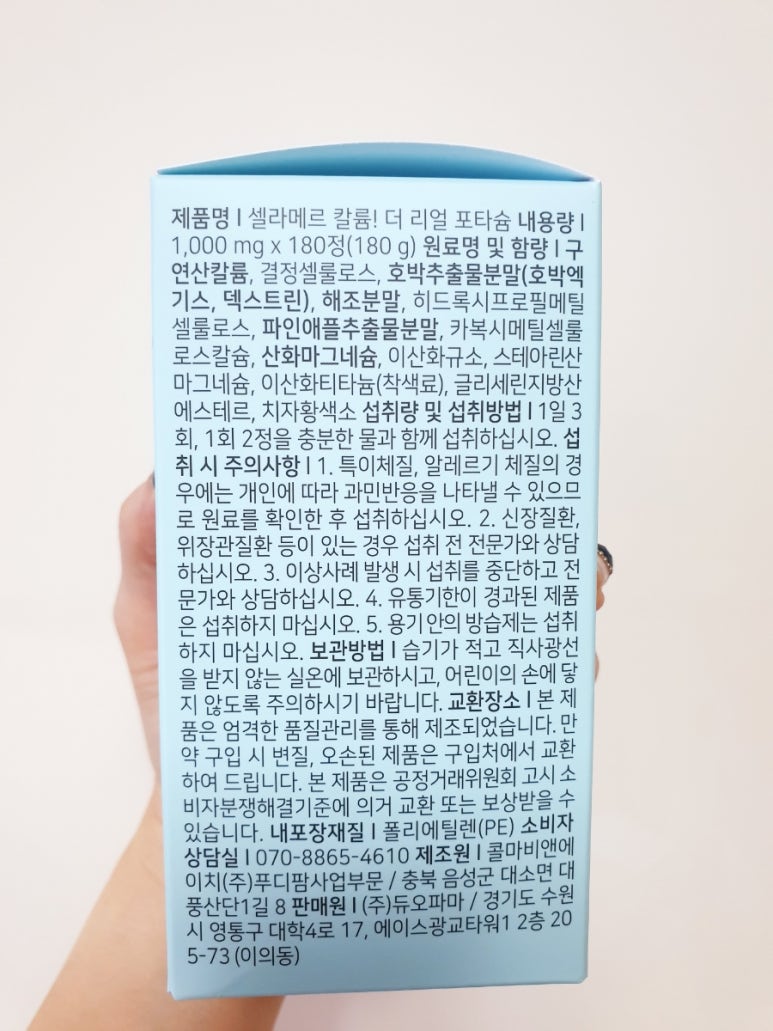 제품명 | 셀라메르 칼륨! 더 리얼 포타슘 내용량 |
1,000 mg x 180정(180 g) 원료명 및 함량 | 구
연산칼륨, 결정셀룰로스, 호박추출물분말(호박엑
기스, 덱스트린), 해조분말, 히드록시프로필메틸
셀룰로스, 파인애플추출물분말, 카복시메틸셀룰
로스칼슘, 산화마그네슘, 이산화규소, 스테아린산
마그네슘, 이산화티타늄(착색료), 글리세린지방산
에스테르, 치자황색소 섭취량 및 섭취방법 | 1일 3
회, 1회 2정을 충분한 물과 함께 섭취하십시오. 섭
취 시 주의사항 | 1. 특이체질, 알레르기 체질의 경
우에는 개인에 따라 과민반응을 나타낼 수 있으므
로 원료를 확인한 후 섭취하십시오. 2. 신장질환,
위장관질환 등이 있는 경우 섭취 전 전문가와 상담
하십시오. 3. 이상사례 발생 시 섭취를 중단하고 전
문가와 상담하십시오. 4. 유통기한이 경과된 제품
은 섭취하지 마십시오. 5. 용기 안의 방습제는 섭취
하지 마십시오. 보관방법 | 습기가 적고 직사광선
을 받지 않는 실온에 보관하시고, 어린이의 손에 닿
지 않도록 주의하시기 바랍니다. 교환장소 | 본 제
품은 엄격한 품질관리를 통해 제조되었습니다. 만
약 구입 시 변질, 오손된 제품은 구입처에서 교환
하여 드립니다. 본 제품은 공정거래위원회 고시 소
비자분쟁해결기준에 의거 교환 또는 보상받을 수
있습니다. 내포장재질 | 폴리에틸렌(PE) 소비자
상담실 | 070-8865-4610 제조원 | 콜마비앤에
이치(주)푸디팜사업부문 / 충북 음성군 대소면 대
풍산단1길 8 판매원 | (주)듀오파마 / 경기도 수원
시 영통구 대학4로 17, 에이스광교타워1 2층 20
5-73 (이의동)